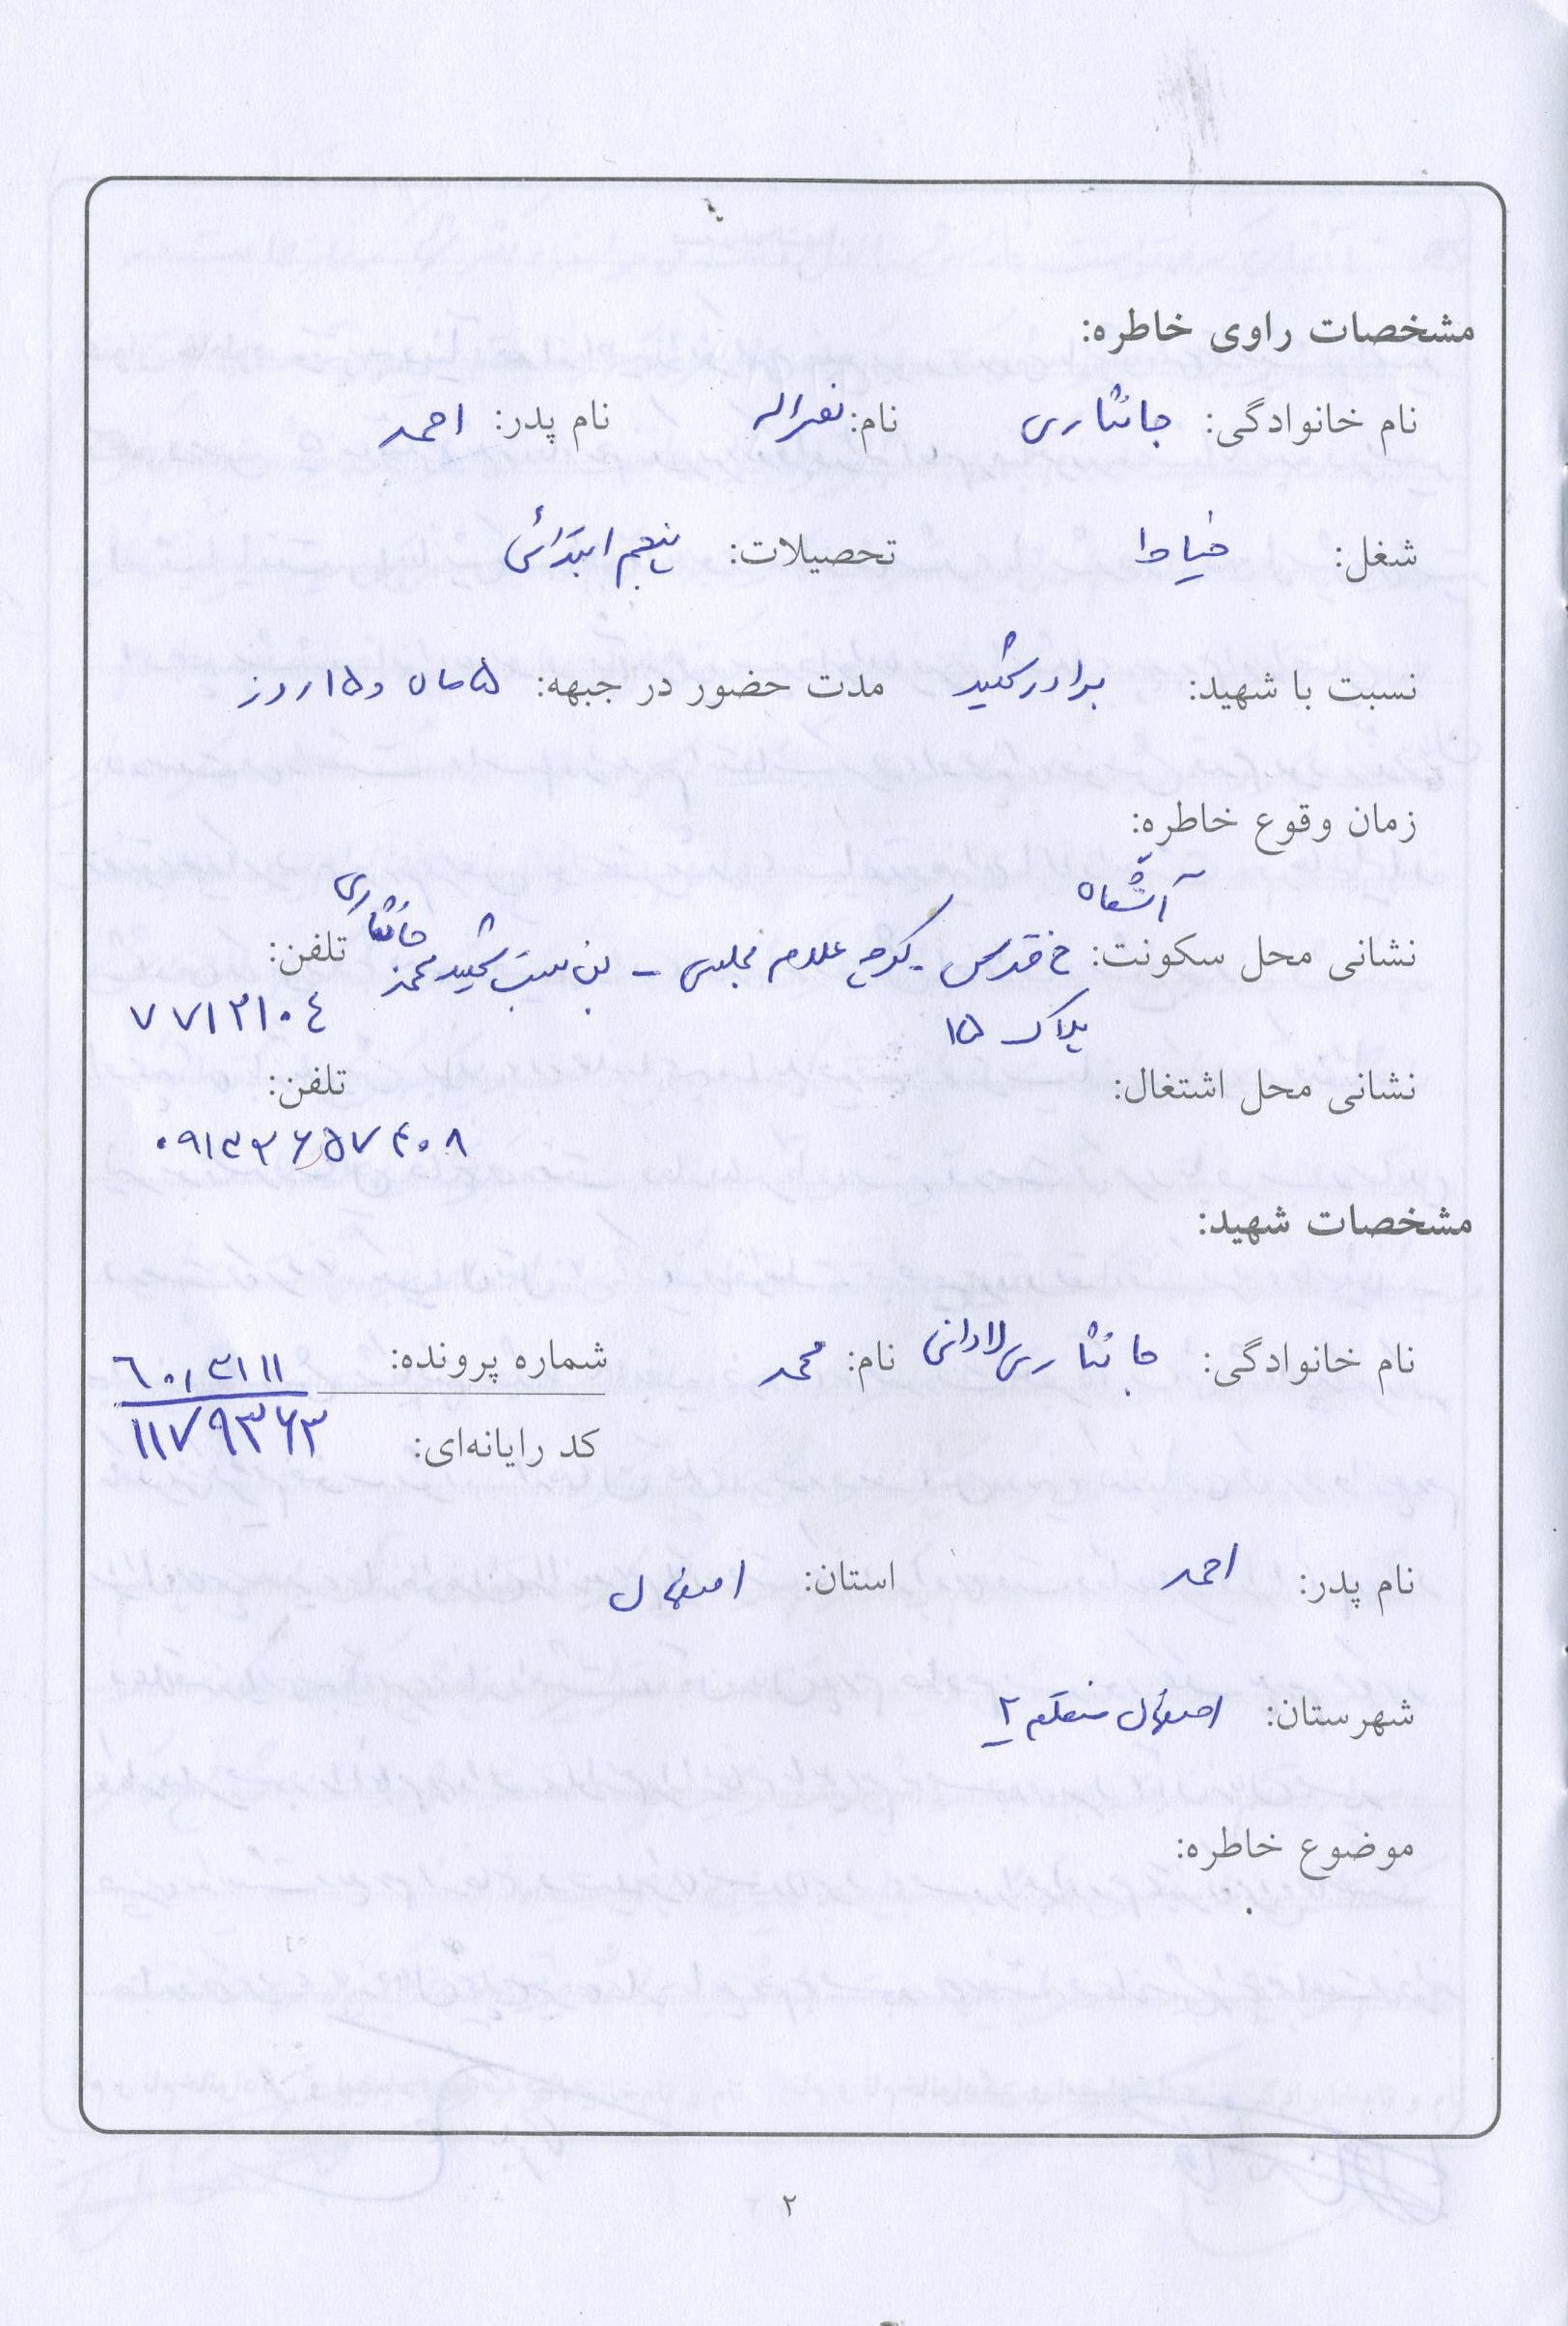 مشخصات راوی خاطره:
نام خانوادگی: جانثاری نام: نصراله نام پدر: احمد
شغل: خیاط تحصیلات: پنجم ابتدائی
نسبت با شهید: برادر شهید مدت حضور در جبهه: ۵ ماه و ۱۵ روز
زمان وقوع خاطره:
آتشگاه
نشانی محل سکونت: خ قدس - کوچه علامه مجلسی - بن بست شهید محمد جانثاری تلفن:
پلاک ۱۵ ۷۷۱۲۱۰۴
نشانی محل اشتغال: تلفن:
۰۹۱۳۳۶۵۷۴۰۸
مشخصات شهید:
نام خانوادگی: جانثاری لادانی نام: محمد شماره پرونده: ۶۰۱۳۱۱۱
کد رایانه‌ای: ۱۱۷۹۳۶۳
نام پدر: احمد استان: اصفهان
شهرستان: اصفهان منطقه ۲
موضوع خاطره:
۲